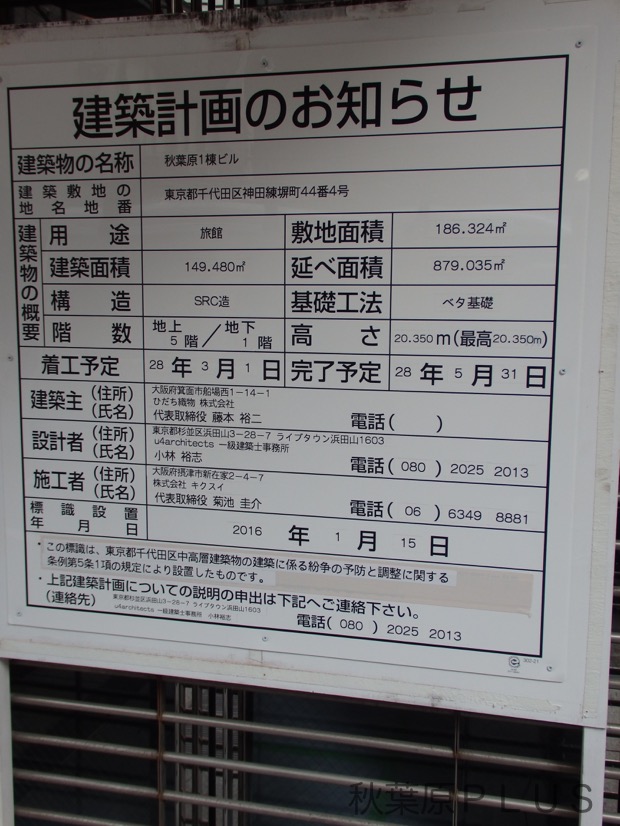 建築計画のお知らせ
建築物の名称 秋葉原1棟ビル
建築敷地の地名地番 東京都千代田区神田練塀町44番4号
建築物の概要
用途 旅館 敷地面積 186.324㎡
建築面積 149.480㎡ 延べ面積 879.035㎡
構造 SRC造 基礎工法 ベタ基礎
階数 地上5階／地下1階 高さ 20.350m(最高20.350m)
着工予定 28年3月1日 完了予定 28年5月31日
建築主(住所)(氏名)
大阪府箕面市船場西1-14-1
ひだち織物 株式会社
代表取締役 藤本 裕二 電話( )
設計者(住所)(氏名)
東京都杉並区浜田山3-28-7 ライブタウン浜田山1603
u4architects 一級建築士事務所
小林 裕志 電話(080)2025 2013
施工者(住所)(氏名)
大阪府摂津市新在家2-4-7
株式会社 キクスイ
代表取締役 菊池 圭介 電話(06)6349 8881
標識設置年月日 2016年1月15日
・この標識は、東京都千代田区中高層建築物の建築に係る紛争の予防と調整に関する
条例第5条1項の規定により設置したものです。
・上記建築計画についての説明の申出は下記へご連絡下さい。
(連絡先) 東京都杉並区浜田山3-28-7 ライブタウン浜田山1603
u4architects 一級建築士事務所 小林裕志
電話(080)2025 2013
302-21
秋葉原PLUS